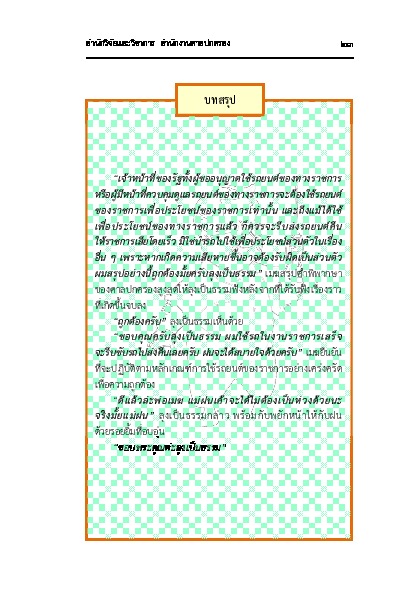 สำนักวิจัยและวิชาการ สำนักงานศาลปกครอง
บทสรุป
"เจ้าหน้าที่ของรัฐทั้งผู้ขออนุญาตใช้รถยนต์ของทางราชการ
หรือผู้มีหน้าที่ควบคุมดูแลรถยนต์ของทางราชการจะต้องใช้รถยนต์
ของราชการเพื่อประโยชน์ของราชการเท่านั้น และถึงแม้ได้ใช้
เพื่อประโยชน์ของทางราชการแล้ว ก็ควรจะรีบส่งรถยนต์คืน
ให้ราชการเสียโดยเร็ว มิใช่นำรถไปใช้เพื่อประโยชน์ส่วนตัวในเรื่อง
อื่น ๆ เพราะหากเกิดความเสียหายขึ้นอาจต้องรับผิดเป็นส่วนตัว
ผมสรุปอย่างนี้ถูกต้องมั้ยครับลุงเป็นธรรม" เมฆสรุปคำพิพากษา
ของศาลปกครองสูงสุดให้ลุงเป็นธรรมฟังหลังจากที่ได้รับฟังเรื่องราว
ที่เกิดขึ้นจบลง
"ถูกต้องครับ" ลุงเป็นธรรมเห็นด้วย
"ขอบคุณครับลุงเป็นธรรม ผมใช้รถในงานราชการเสร็จ
จะรีบขับรถไปส่งคืนเลยครับ ฝนจะได้สบายใจด้วยครับ" เมฆยืนยัน
ที่จะปฏิบัติตามหลักเกณฑ์การใช้รถยนต์ของราชการอย่างเคร่งครัด
เพื่อความถูกต้อง
"ดีแล้วล่ะพ่อเมฆ แม่ฝนเค้าจะได้ไม่ต้องเป็นห่วงด้วยนะ
จริงมั้ยแม่ฝน" ลุงเป็นธรรมกล่าว พร้อมกับพยักหน้าให้กับฝน
ด้วยรอยยิ้มที่อบอุ่น
"ขอบพระคุณค่ะลุงเป็นธรรม"